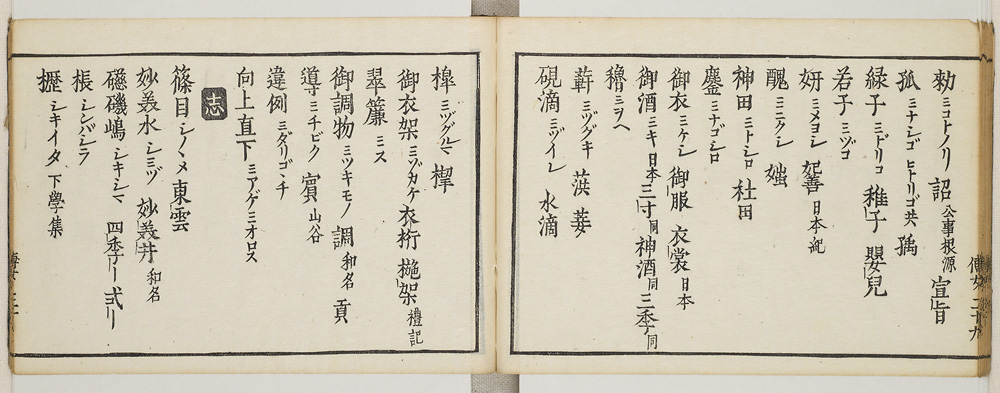 勅 ミコトノリ 詔 公事根源 宣旨
孤 ミナシゴ ヒトリゴ共 孺
緑子 ミドリコ 稚子 嬰児
若子 ミヅコ
妍 ミメヨシ 妃善 日本紀
醜 ミニクシ 媸
神田 ミトシロ 社田
鏖 ミナゴロ
御衣 ミケシ 御服 衣裳 日本
御酒 ミキ 日本 三寸 同 神酒 同 三季 同
穭 ミヲヘ
葑 ミヅグキ 葓 菨
硯滴 ミヅイレ 水滴
槹 ミヅグルマ 桿
御衣架 ミゾカケ 衣桁 椸架 禮記
翠簾 ミス
御調物 ミツキモノ 調 和名 貢
導 ミチビク 賓 山谷
違例 ミダリゴヽチ
向上直下 ミアゲミオロス
志
篠目 シノヽメ 東雲
妙美水 シミヅ 妙美井 和名
磁磯嶋 シキシマ 四季ー 式ー
棖 シンバシラ
攊 シキイタ 下學集